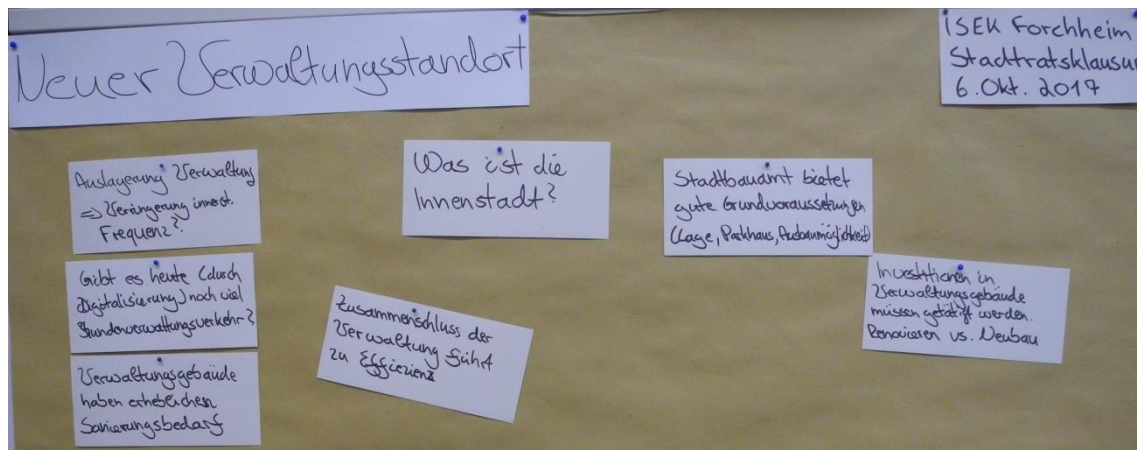 Neuer Verwaltungsstandort
ISEK Forchheim
Stadtratsklausur
6. Okt. 2017
Auslagerung Verwaltung
=> Verringerung innerst.
Frequenz?
Gibt es heute (durch
Digitalisierung) noch viel
Kundenverwaltungsverkehr?
Verwaltungsgebäude
haben erheblichen
Sanierungsbedarf
Was ist die
Innenstadt?
Zusammenschluss der
Verwaltung führt
zu Effizienz
Stadtbauamt bietet
gute Grundvoraussetzungen
(Lage, Parkhaus, Ausbaumöglichkeit)
Investitionen in
Verwaltungsgebäude
müssen getätigt werden.
Renovieren vs. Neubau